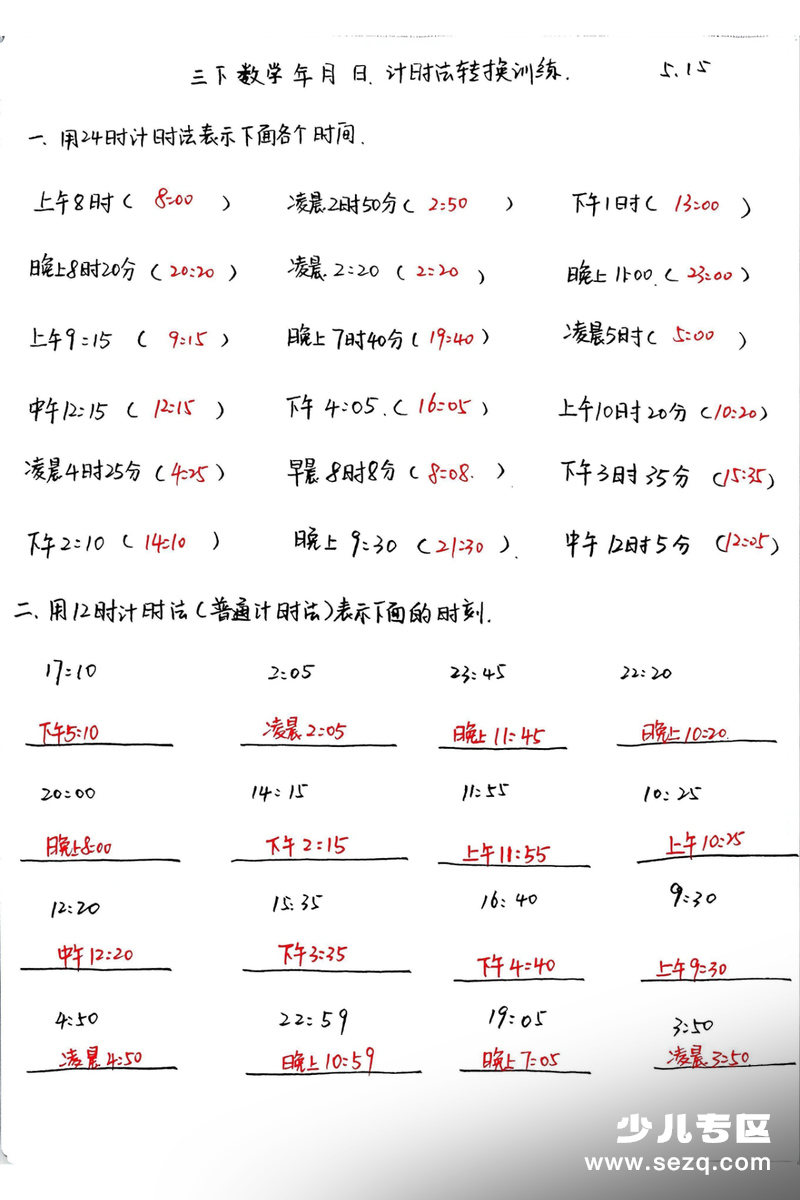 三下数学年月日.计时法转换训练. 5.15
一、用24时计时法表示下面各个时间.
上午8时( 8:00 ) 凌晨2时50分( 2:50 ) 下午1时( 13:00 )
晚上8时20分(20:20) 凌晨2:20 (2:20 ) 晚上11:00.(23:00)
上午9:15 ( 9:15 ) 晚上7时40分(19:40) 凌晨5时( 5:00 )
中午12:15 ( 12:15 ) 下午4:05.( 16:05 ) 上午10时20分(10:20)
凌晨4时25分(4:25) 早晨8时8分(8:08. ) 下午3时35分 (15:35)
下午2:10 ( 14:10 ) 晚上9:30 (21:30 ). 中午12时5分 (12:05)
二、用12时计时法(普通计时法)表示下面的时刻.
17:10 2:05 23:45 22:20
下午5:10 凌晨2:05 晚上11:45 晚上10:20.
20:00 14:15 11:55 10:25
晚上8:00 下午2:15 上午11:55 上午10:25
12:20 15:35 16:40 9:30
中午12:20 下午3:35 下午4:40 上午9:30
4:50 22:59 19:05 3:50
凌晨4:50 晚上10:59 晚上7:05 凌晨3:50.
少儿专区
www.sezq.com